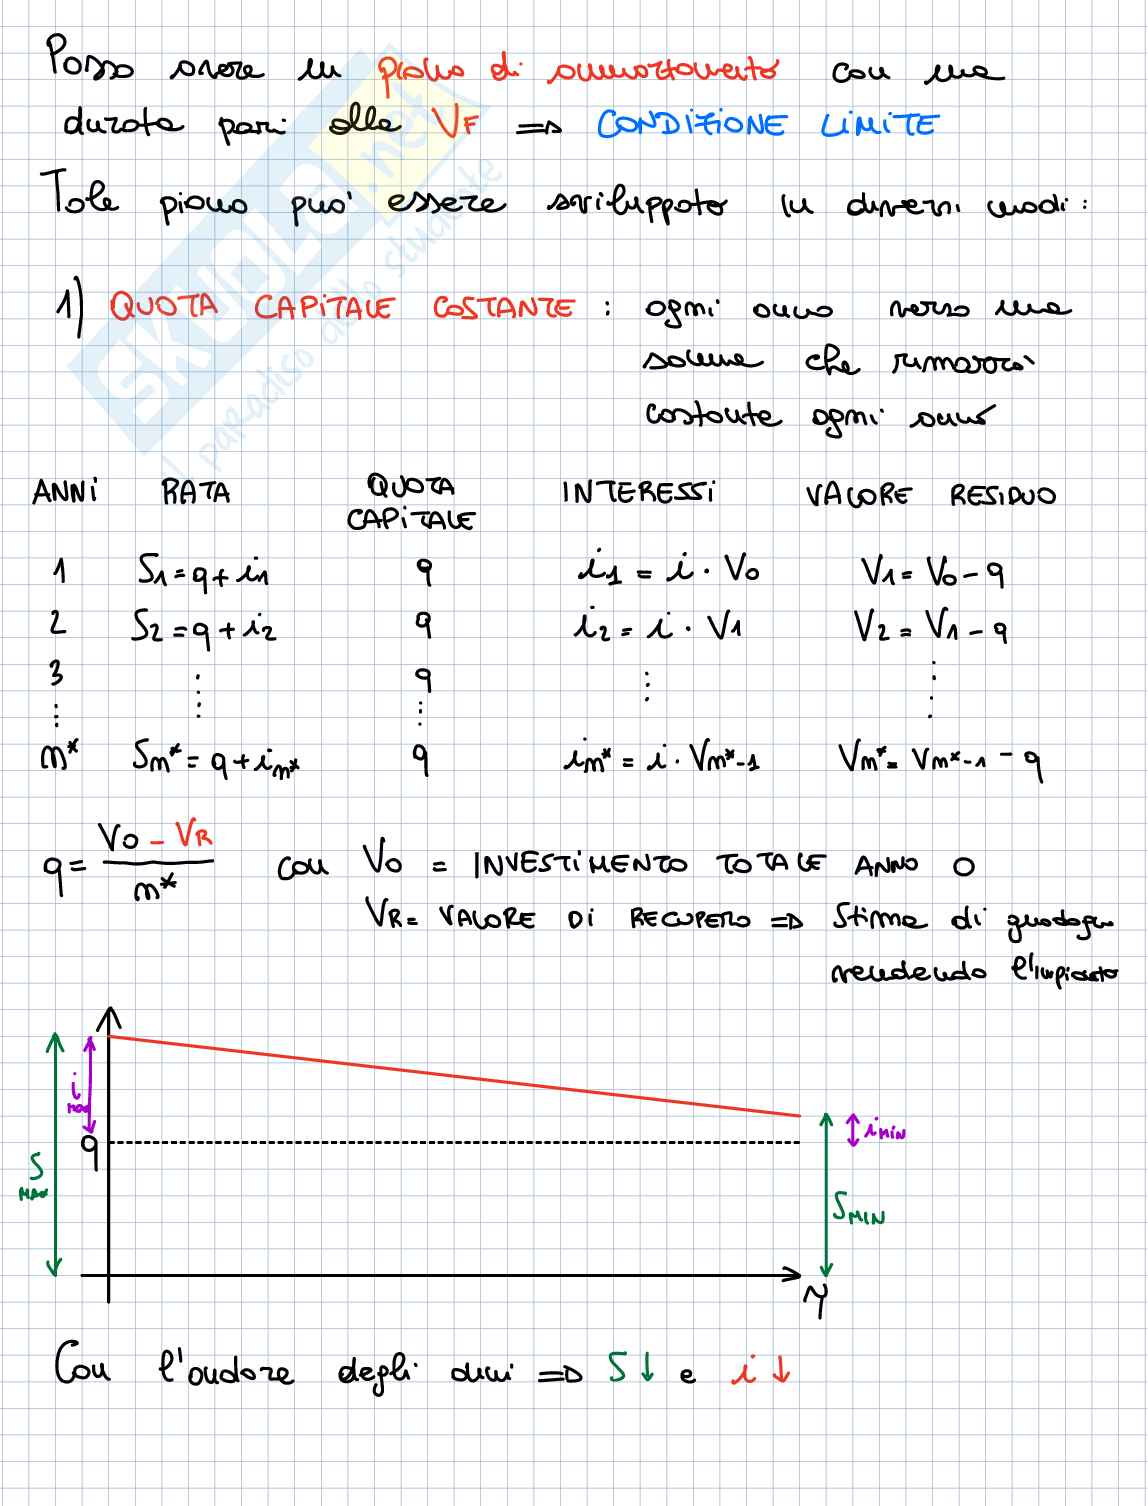 Posso avere un piano di ammortamento con una
durata pari alla VF => CONDIZIONE LIMITE
Tale piano può essere sviluppato in diversi modi:
1) QUOTA CAPITALE COSTANTE : ogni anno verso una
somma che rimarrà
costante ogni anno
ANNI RATA QUOTA CAPITALE INTERESSI VALORE RESIDUO
1 S1 = q + i1 q i1 = i · V0 V1 = V0 - q
2 S2 = q + i2 q i2 = i · V1 V2 = V1 - q
3 ⋮ q ⋮ ⋮
⋮ ⋮
m* Sm* = q + im* q im* = i · Vm*-1 Vm* = Vm*-1 - q
q = (V0 - VR) / m* con V0 = INVESTIMENTO TOTALE ANNO 0
VR = VALORE DI RECUPERO => Stima di guadagno
vendendo l'impianto
i MAX
q
S MAX
i MIN
S MIN
Con l'andare degli anni => S↓ e i↓
SKUOLA.net
il paradiso dello studente